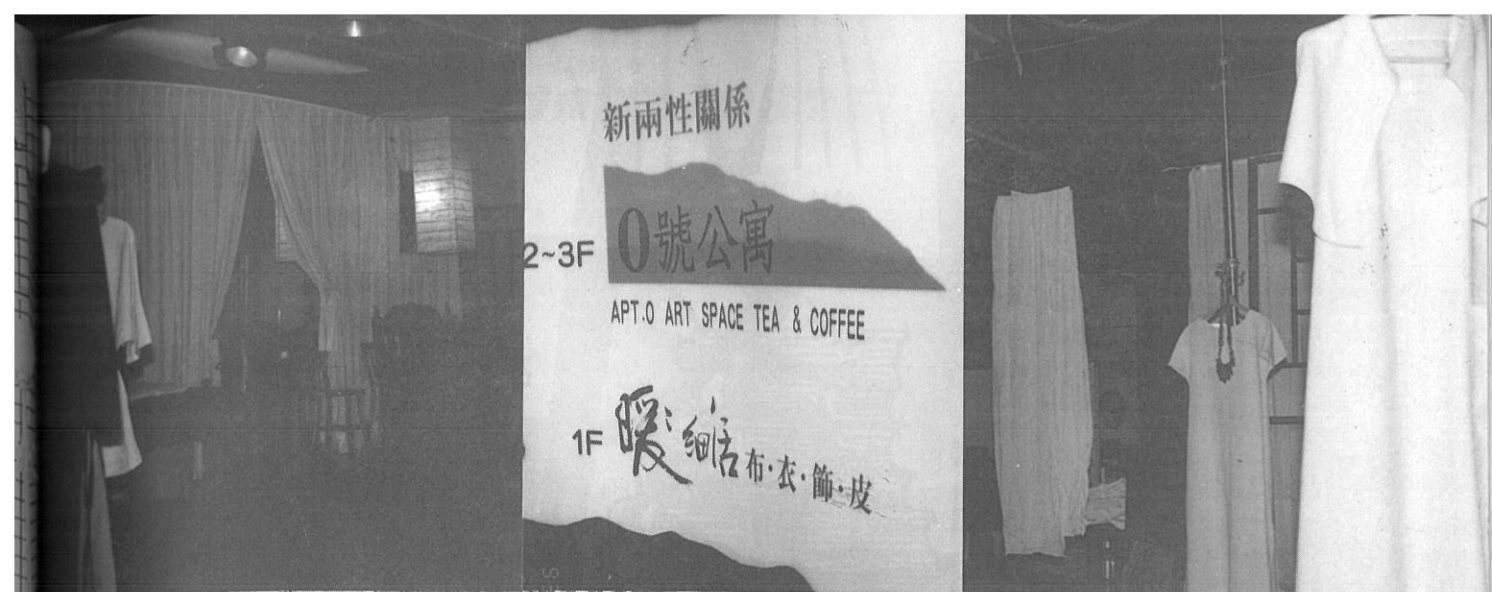 新兩性關係
2~3F 0號公寓
APT.O ART SPACE TEA & COFFEE
1F 暖細居 布·衣·飾·皮